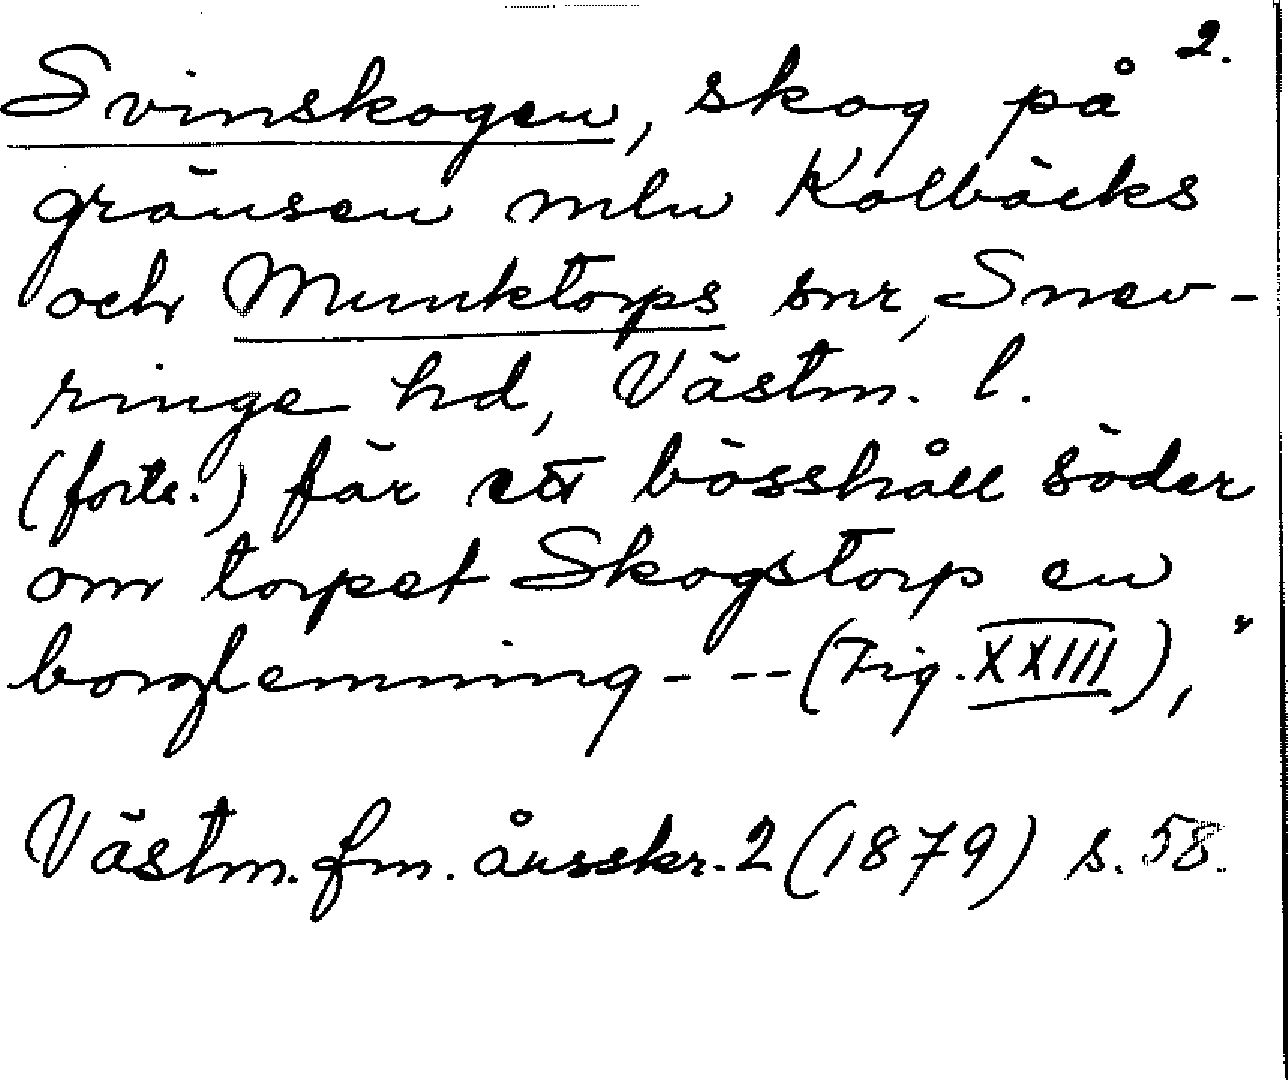 2.
Svinskogen, skog på
gränsen mln Kolbäcks
och Munktorps snr, Snev-
ringe hd, Västm. l.
(forts.) får ett bösshåll söder
om torpet Skogstorp en
borglemning - -- (Fig. XXIII), "
Västm. fm. årsskr. 2 (1879) s. 58.